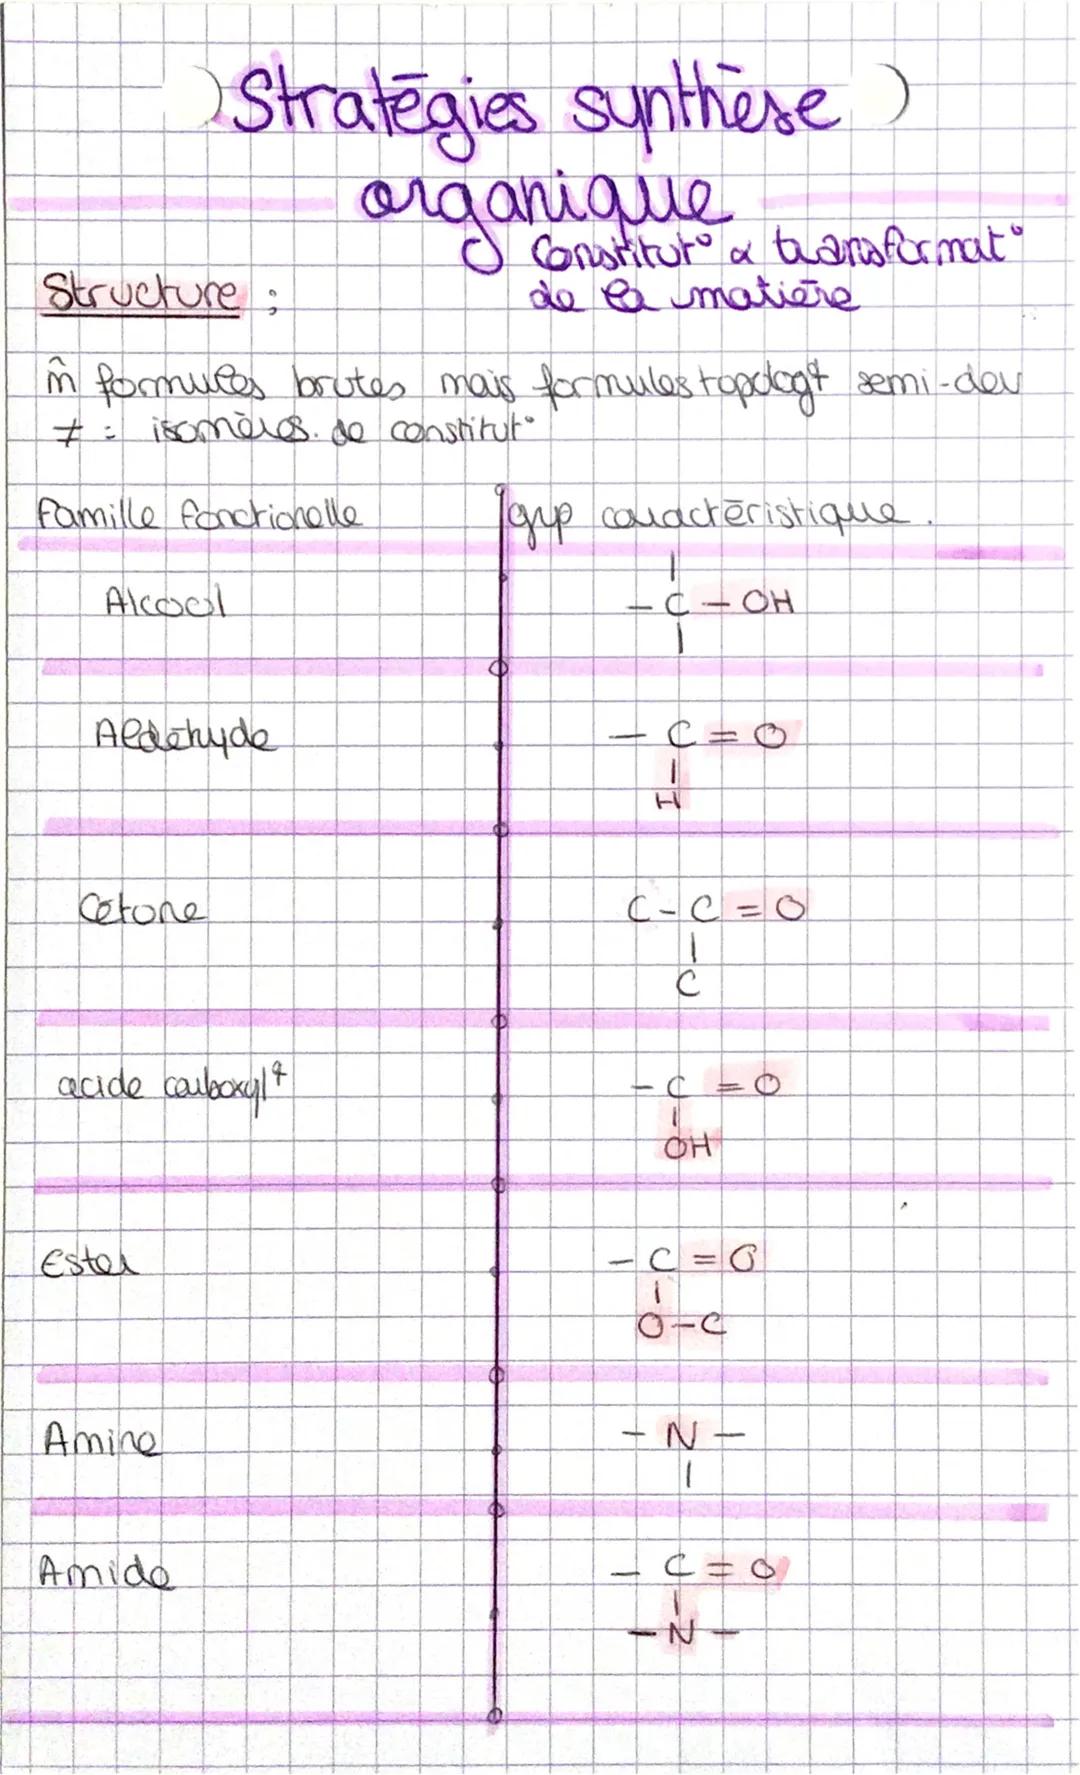 Stratégies synthèse
organique
Constitut° & transformat°
de la matière
Structure :
m̂ formules brutes mais formules topologq semi-dev
≠ : isomères de constitut°
Famille fonctionelle | grp caractéristique.
|
Alcool – C – OH
|
Aldéhyde – C = O
|
H
Cétone C – C = O
|
C
acide carboxylq – C = O
|
OH
Ester – C = O
|
O – C
Amine – N –
|
Amide – C = O
|
– N –